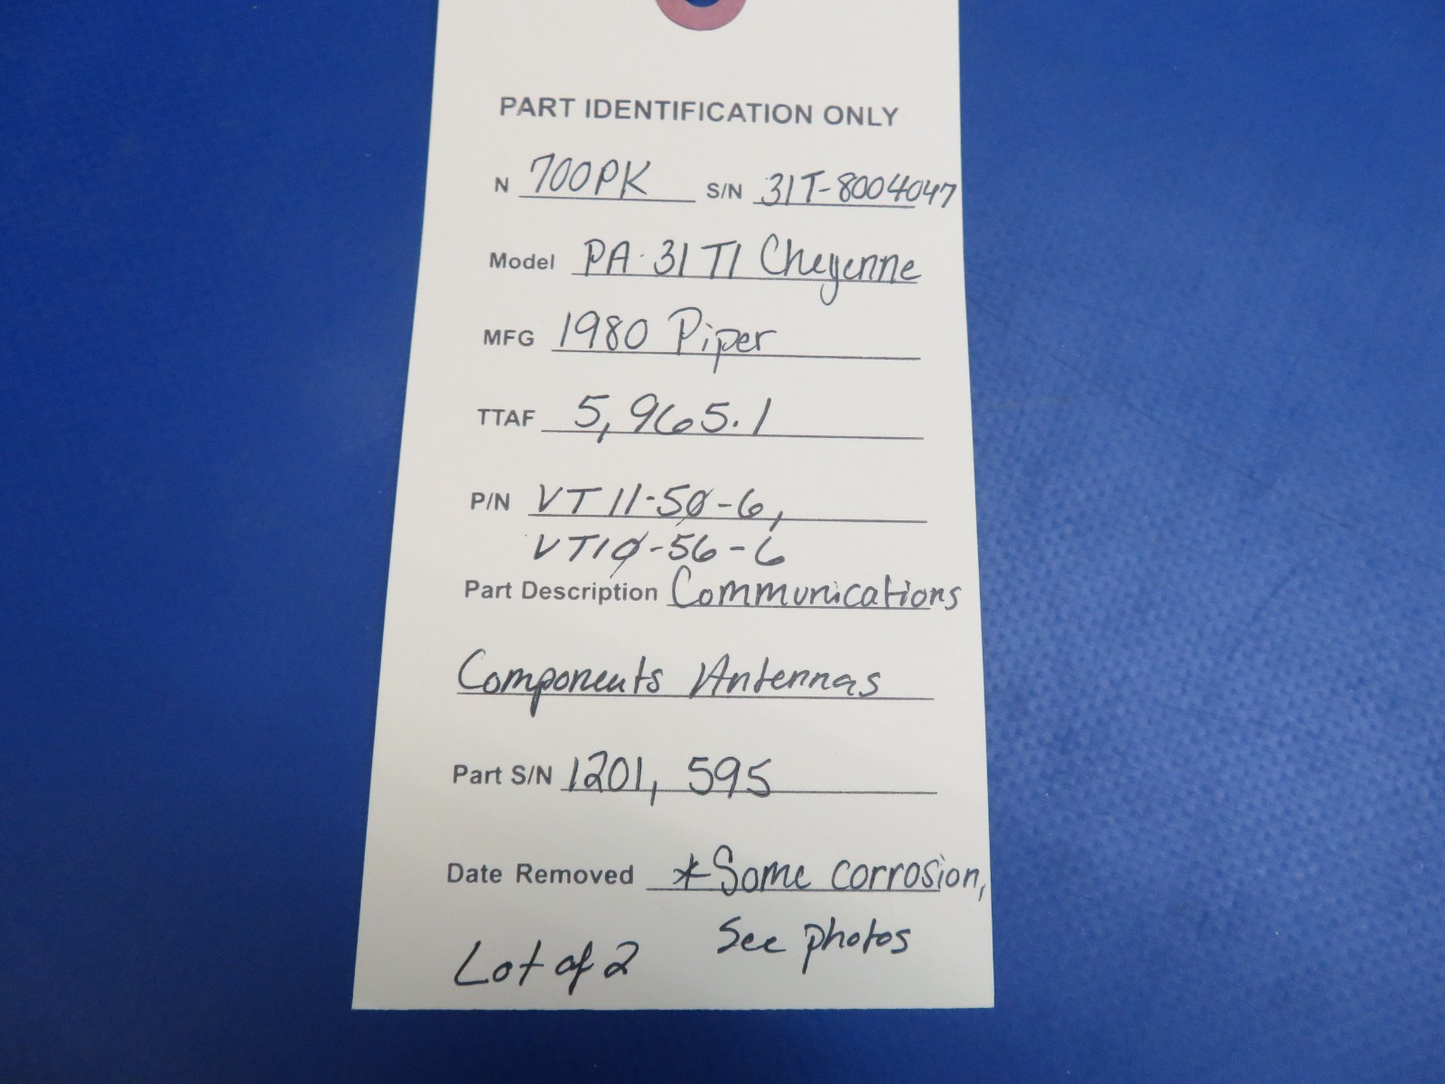 PART IDENTIFICATION ONLY
N 700PK S/N 31T-8004047
Model PA-31T1 Cheyenne
MFG 1980 Piper
TTAF 5,965.1
P/N VT11-50-6,
VT10-56-6
Part Description Communications
Components Antennas
Part S/N 1201, 595
Date Removed *Some corrosion,
See photos
Lot of 2